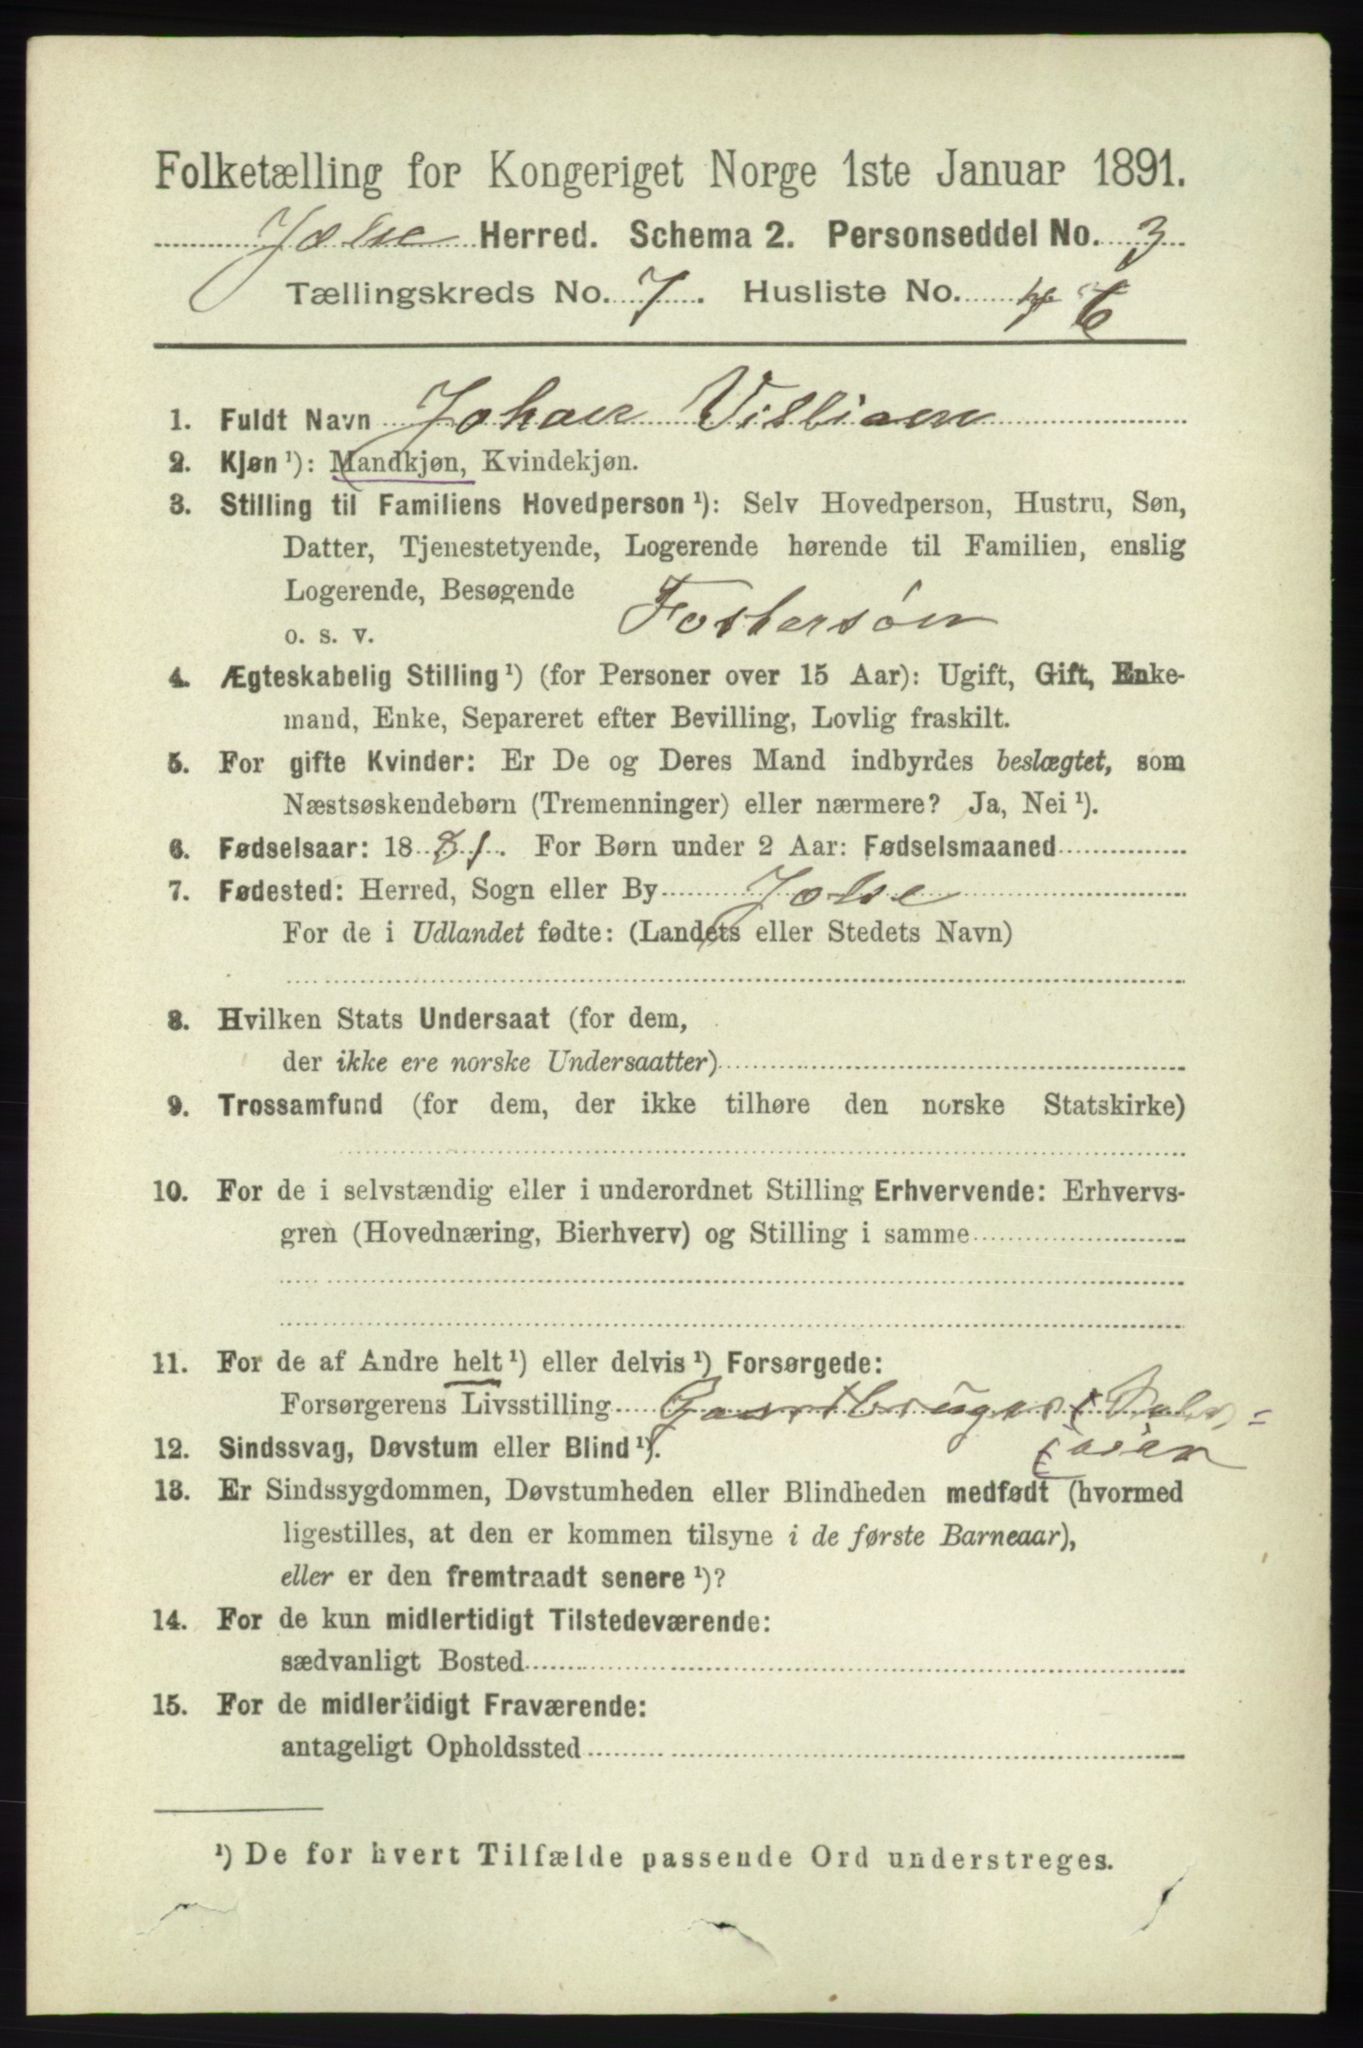 Folketælling for Kongeriget Norge 1ste Januar 1891.
Jølse Herred. Schema 2. Personseddel No. 3
Tællingskreds No. 7. Husliste No. 6
1. Fuldt Navn Johan Villiam
2. Kjøn ¹): Mandkjøn, Kvindekjøn.
3. Stilling til Familiens Hovedperson ¹): Selv Hovedperson, Hustru, Søn,
Datter, Tjenestetyende, Logerende hørende til Familien, enslig
Logerende, Besøgende
o. s. v. Fostersøn
4. Ægteskabelig Stilling ¹) (for Personer over 15 Aar): Ugift, Gift, Enke-
mand, Enke, Separeret efter Bevilling, Lovlig fraskilt.
5. For gifte Kvinder: Er De og Deres Mand indbyrdes beslægtet, som
Næstsøskendebørn (Tremenninger) eller nærmere? Ja, Nei ¹).
6. Fødselsaar: 1881. For Børn under 2 Aar: Fødselsmaaned
7. Fødested: Herred, Sogn eller By Jølse
For de i Udlandet fødte: (Landets eller Stedets Navn)
8. Hvilken Stats Undersaat (for dem,
der ikke ere norske Undersaatter)
9. Trossamfund (for dem, der ikke tilhøre den norske Statskirke)
10. For de i selvstændig eller i underordnet Stilling Erhvervende: Erhvervs-
gren (Hovednæring, Bierhverv) og Stilling i samme
11. For de af Andre helt ¹) eller delvis ¹) Forsørgede:
Forsørgerens Livsstilling Gaardbruger
12. Sindssvag, Døvstum eller Blind ¹).
13. Er Sindssygdommen, Døvstumheden eller Blindheden medfødt (hvormed
ligestilles, at den er kommen tilsyne i de første Barneaar),
eller er den fremtraadt senere ¹)?
14. For de kun midlertidigt Tilstedeværende:
sædvanligt Bosted
15. For de midlertidigt Fraværende:
antageligt Opholdssted
¹) De for hvert Tilfælde passende Ord understreges.